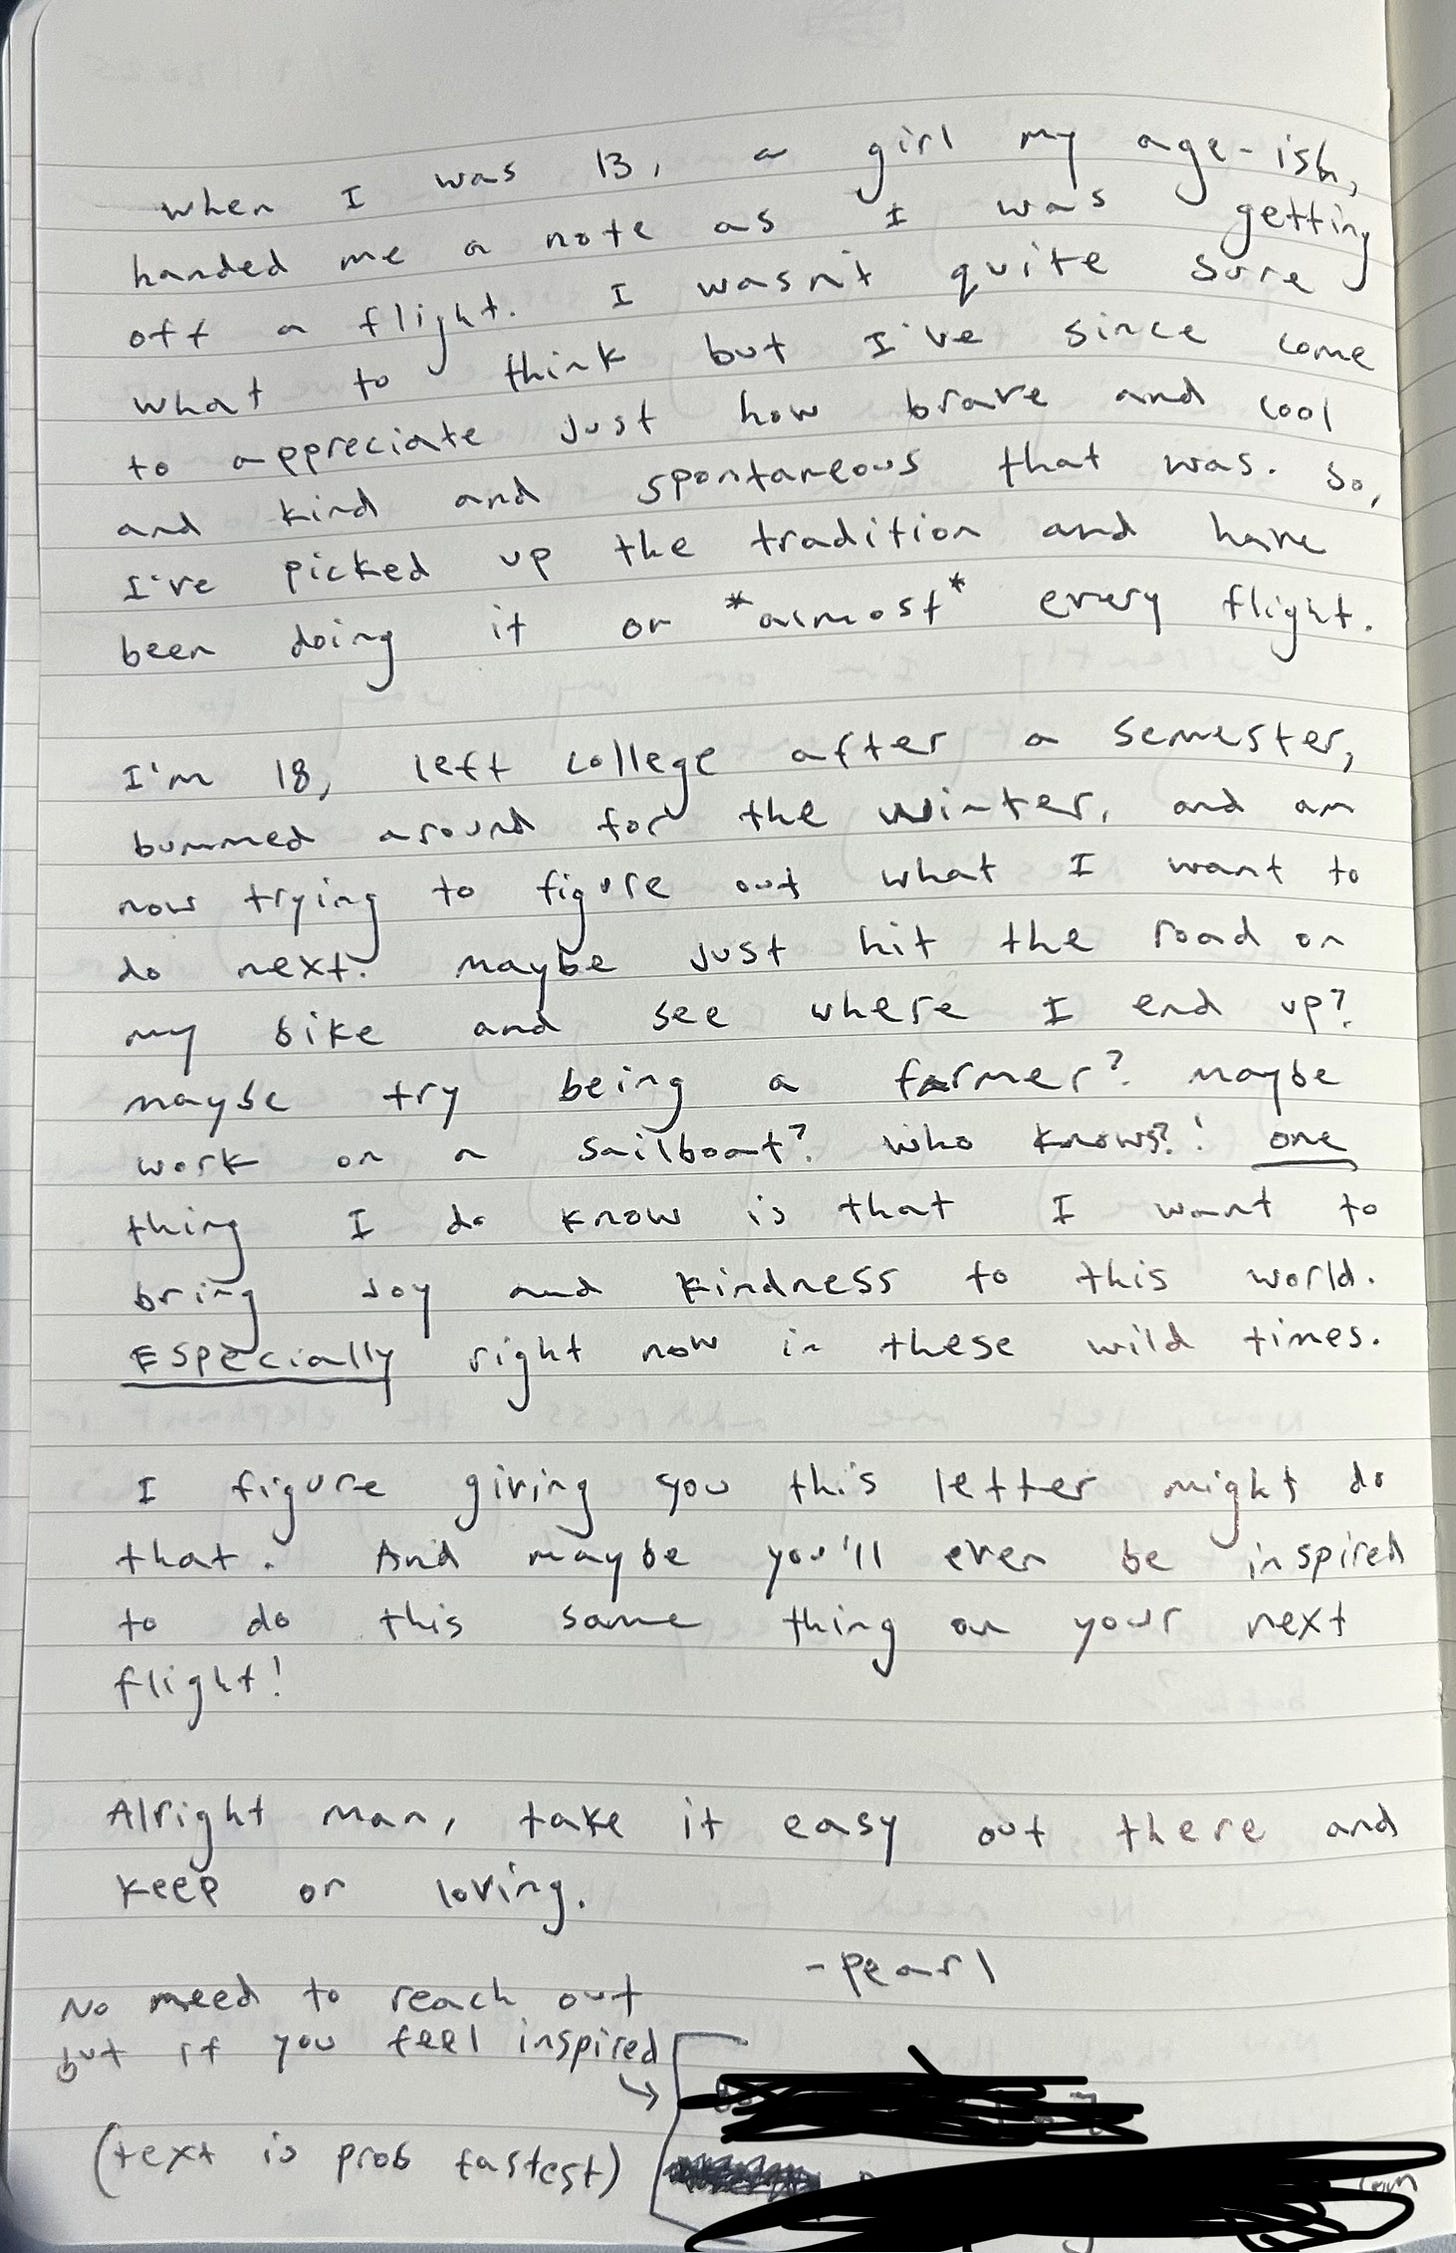 when I was 13, a girl my age-ish,
handed me a note as I was getting
off a flight. I wasn't quite sure
what to think but I've since come
to appreciate just how brave and cool
and kind and spontaneous that was. so,
I've picked up the tradition and have
been doing it on *almost* every flight.
I'm 18, left college after a semester,
bummed around for the winter, and am
now trying to figure out what I want to
do next. maybe just hit the road on
my bike and see where I end up?
maybe try being a farmer? maybe
work on a sailboat? who knows?! one
thing I do know is that I want to
bring joy and kindness to this world.
Especially right now in these wild times.
I figure giving you this letter might do
that. And maybe you'll even be inspired
to do this same thing on your next
flight!
Alright man, take it easy out there and
keep on loving.
-pearl
No need to reach out
but if you feel inspired
(text is prob fastest)